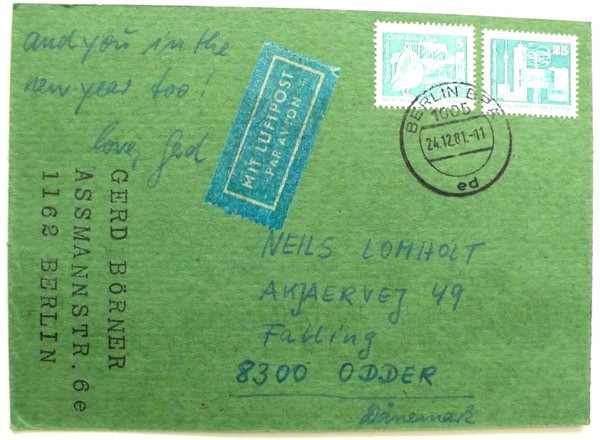 and you in the
new year too!
love, Gerd
MIT LUFTPOST
PAR AVION
5
25
BERLIN BPA
1085
24.12.81.-11
ed
GERD BÖRNER
ASSMANNSTR.6e
1162 BERLIN
NEILS LOMHOLT
AKJAERVEJ 49
Falling
8300 ODDER
Dänemark